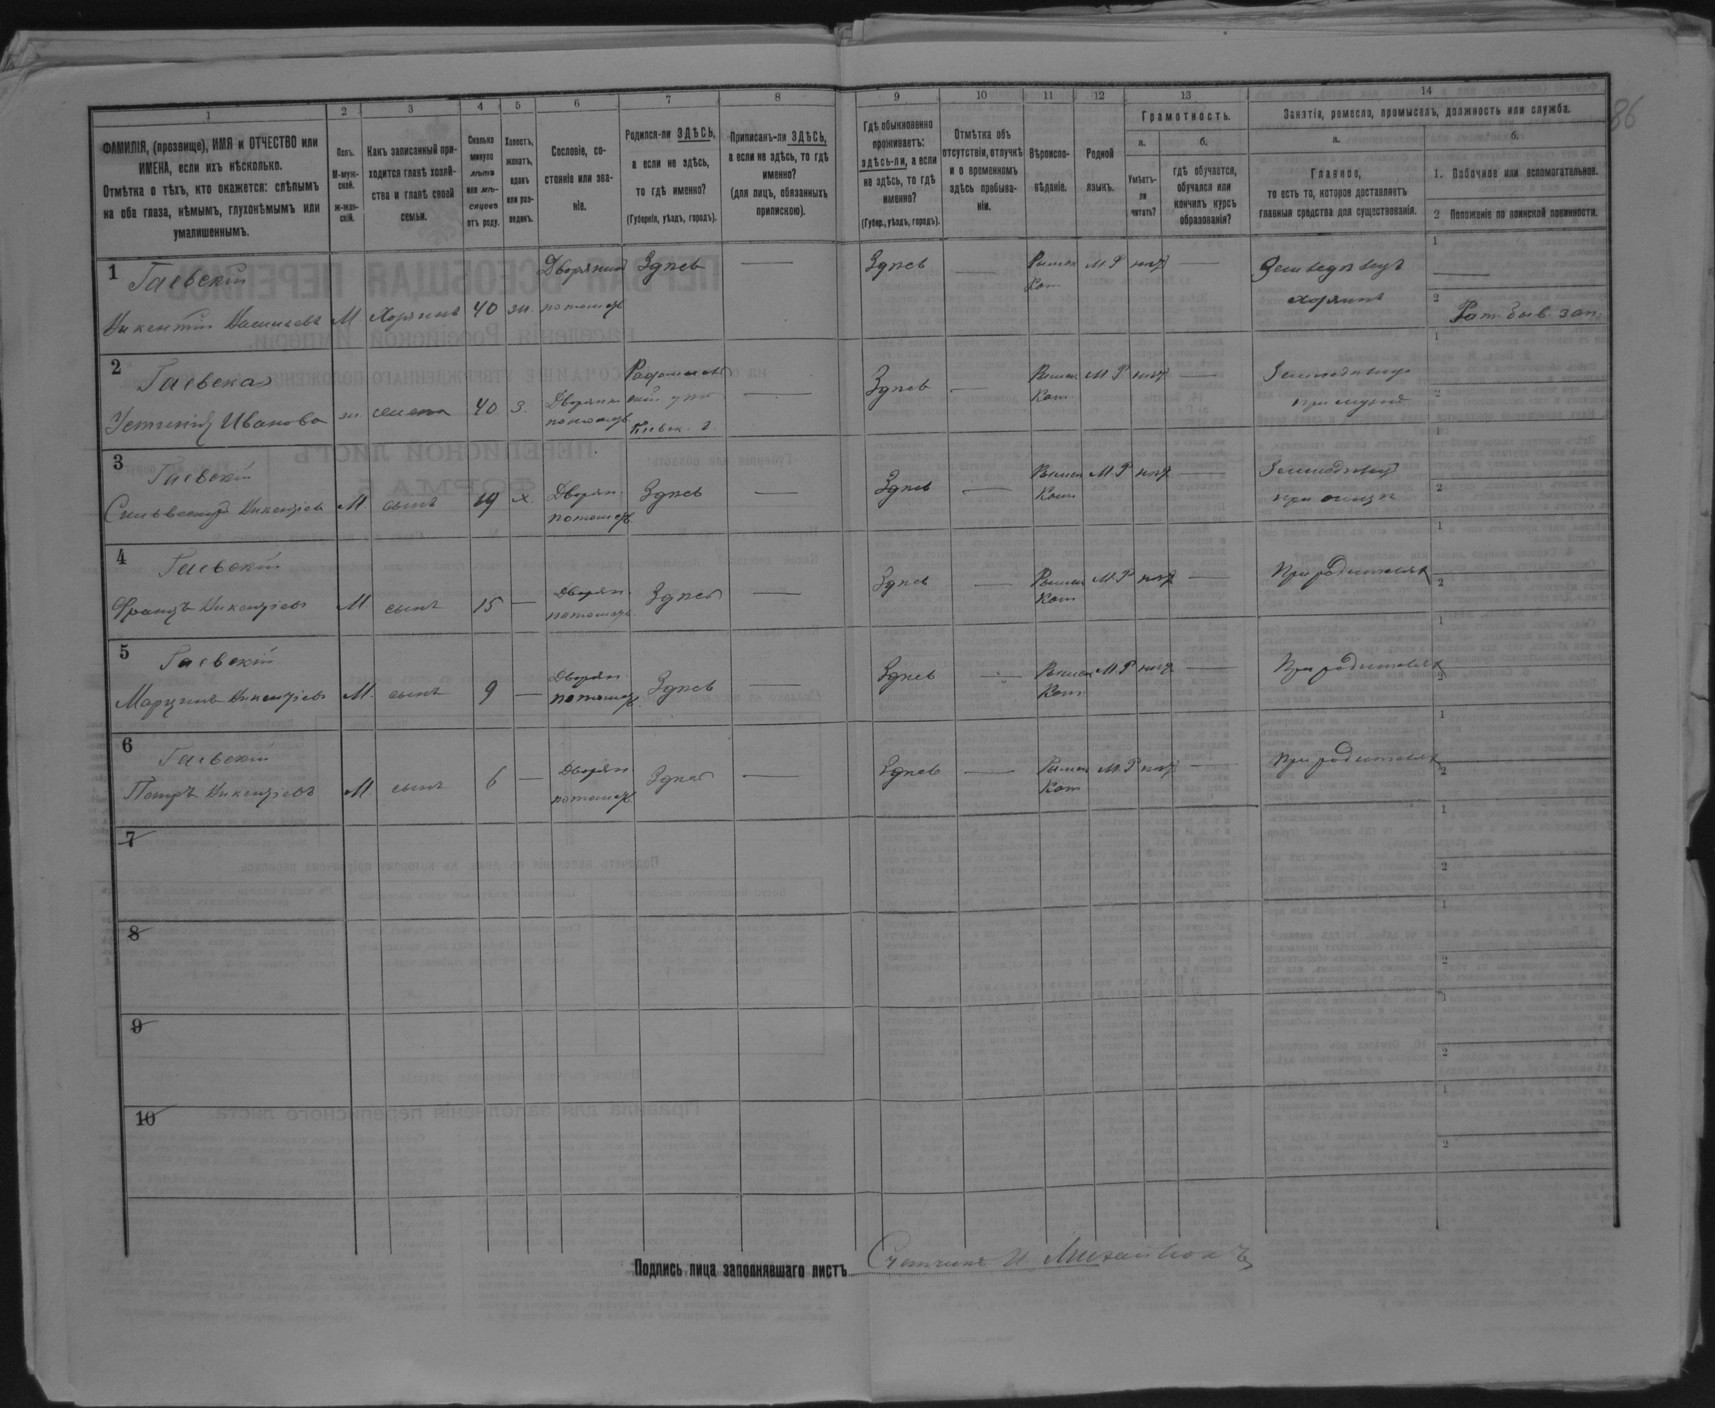 86
1
2
3
4
5
6
7
8
9
10
11
12
13
14
ФАМИЛІЯ, (прозвище), ИМЯ и ОТЧЕСТВО или
ИМЕНА, если ихъ нѣсколько.
Отмѣтка о тѣхъ, кто окажется: слѣпымъ
на оба глаза, нѣмымъ, глухонѣмымъ или
умалишеннымъ.
Полъ.
М-муж-
ской.
ж-жен-
скій.
Какъ записанный при-
ходится главѣ хозяй-
ства и главѣ своей
семьи.
Сколько
минуло
лѣтъ
или мѣ-
сяцевъ
отъ роду.
Холостъ,
женатъ,
вдовъ
или раз-
веденъ.
Сословіе, со-
стояніе или зва-
ніе.
Родился-ли ЗДѢСЬ,
а если не здѣсь,
то гдѣ именно?
(Губернія, уѣздъ, городъ).
Приписанъ-ли ЗДѢСЬ,
а если не здѣсь, то гдѣ
именно?
(для лицъ, обязанныхъ
припискою).
Гдѣ обыкновенно
проживаетъ:
здѣсь-ли, а если
не здѣсь, то гдѣ
именно?
(Губер., уѣздъ, городъ).
Отмѣтка объ
отсутствіи, отлучкѣ
и о временномъ
здѣсь пребыва-
ніи.
Вѣроиспо-
вѣданіе.
Родной
языкъ.
Грамотность.
а.
Умѣетъ-
ли
читать?
б.
гдѣ обучается,
обучался или
кончилъ курсъ
образованія?
Занятіе, ремесло, промыселъ, должность или служба.
а.
Главное,
то есть то, которое доставляетъ
главныя средства для существованія.
б.
1. Побочное или вспомогательное.
2 Положеніе по воинской повинности.
1 Гаевскій
Викентій М Хозяинъ 40 ж. Дворянинъ потомств Здѣсь — Здѣсь — Римск Кат М Р нѣт — Земледѣлецъ хозяинъ
1 —
2
2 Гаевская
Устинія Иванова ж. жена 40 з. Дворянк потомств — Здѣсь — Римск Кат М Р нѣт — при мужѣ
1
2
3 Гаевскій
Сильвестр Викентіев М. сынъ 19 х. Дворян потомств Здѣсь — Здѣсь — Римск Кат М Р нѣт — при отцѣ
1
2
4 Гаевскій
Францъ Викентіев М. сынъ 15 — Дворян потомств Здѣсь — Здѣсь — Римск Кат М Р нѣт — При родителях
1
2
5 Гаевскій
Марцинъ Викентіев М. сынъ 9 — Дворян потомств Здѣсь — Здѣсь — Римск Кат М Р нѣт — При родителях
1
2
6 Гаевскій
Петръ Викентіевъ М. сынъ 6 — Дворян потомств Здѣсь — Здѣсь — Римск Кат М Р нѣт — При родителях
1
2
7
1
2
8
1
2
9
1
2
10
1
2
Подпись лица заполнявшаго листъ Счетчикъ И